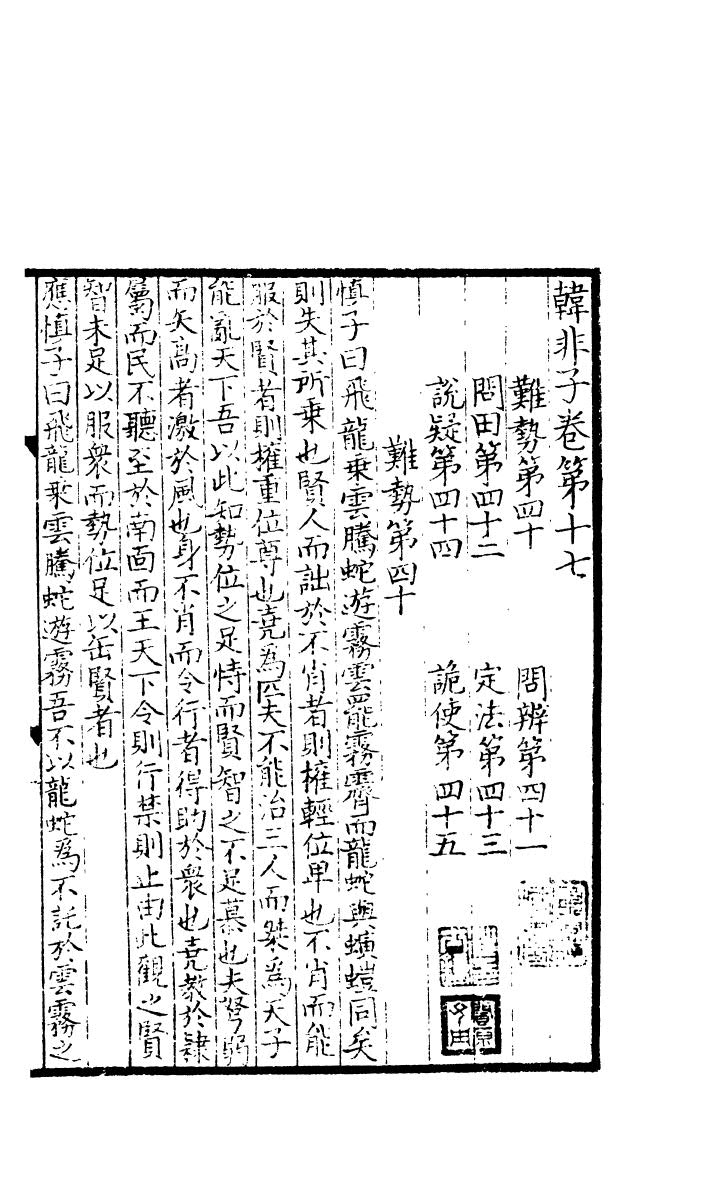 韓非子卷第十七
難勢第四十　問辨第四十一
問田第四十二　定法第四十三
說疑第四十四　詭使第四十五
難勢第四十
慎子曰飛龍乗雲騰蛇遊霧雲罷霧霽而龍蛇與螾螘同矣
則失其所乗也賢人而詘於不肖者則權輕位卑也不肖而能
服於賢者則權重位尊也堯為匹夫不能治三人而桀為天子
能亂天下吾以此知勢位之足恃而賢智之不足慕也夫弩弱
而矢高者激於風也身不肖而令行者得助於衆也堯教於隸
屬而民不聽至於南面而王天下令則行禁則止由此觀之賢
智未足以服衆而勢位足以缶賢者也
應慎子曰飛龍乗雲騰蛇遊霧吾不以龍蛇為不託於雲霧之